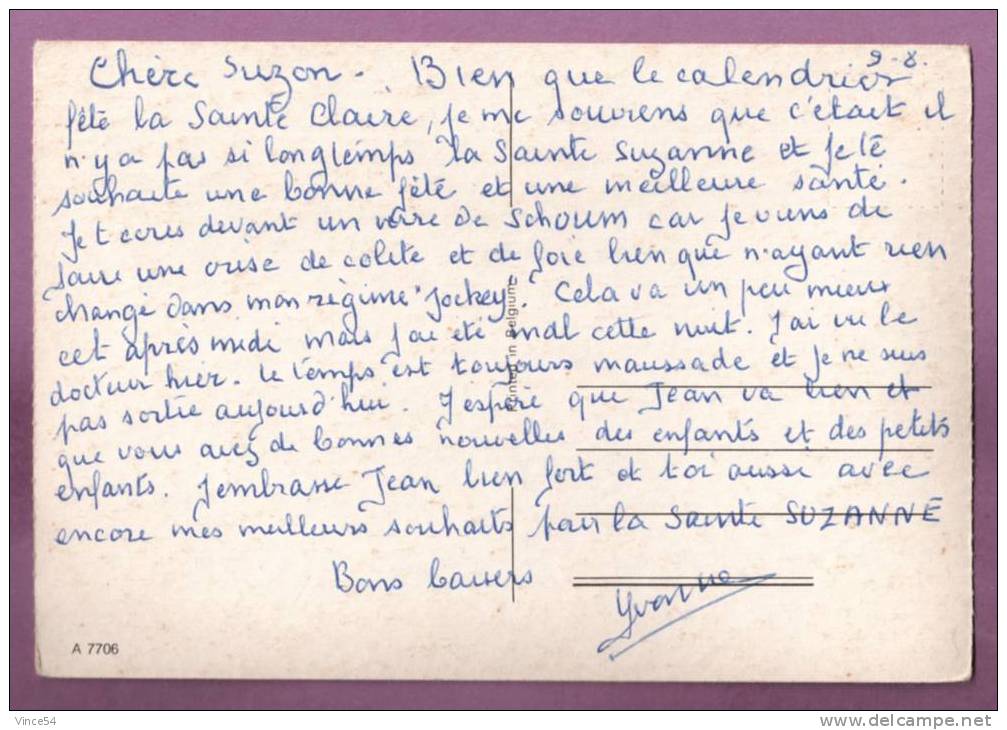 9-8.
Chère Suzon - Bien que le calendrier
fête la Sainte Claire, je me souviens que c'était il
n'y a pas si longtemps la Sainte Suzanne et je te
souhaite une bonne fête et une meilleure santé.
Je t'écris devant un verre de Schoum car je viens de
faire une crise de colite et de foie bien que n'ayant rien
changé dans mon régime "Jockey". Cela va un peu mieux
cet après midi mais j'ai été mal cette nuit. J'ai vu le
docteur hier. Le temps est toujours maussade et je ne suis
pas sortie aujourd'hui. J'espère que Jean va bien et
que vous avez de bonnes nouvelles des enfants et des petits
enfants. J'embrasse Jean bien fort et toi aussi avec
encore mes meilleurs souhaits pour la Sainte SUZANNE
Bons baisers
Yvonne
Printed in Belgium
A 7706
Vince54
www.delcampe.net